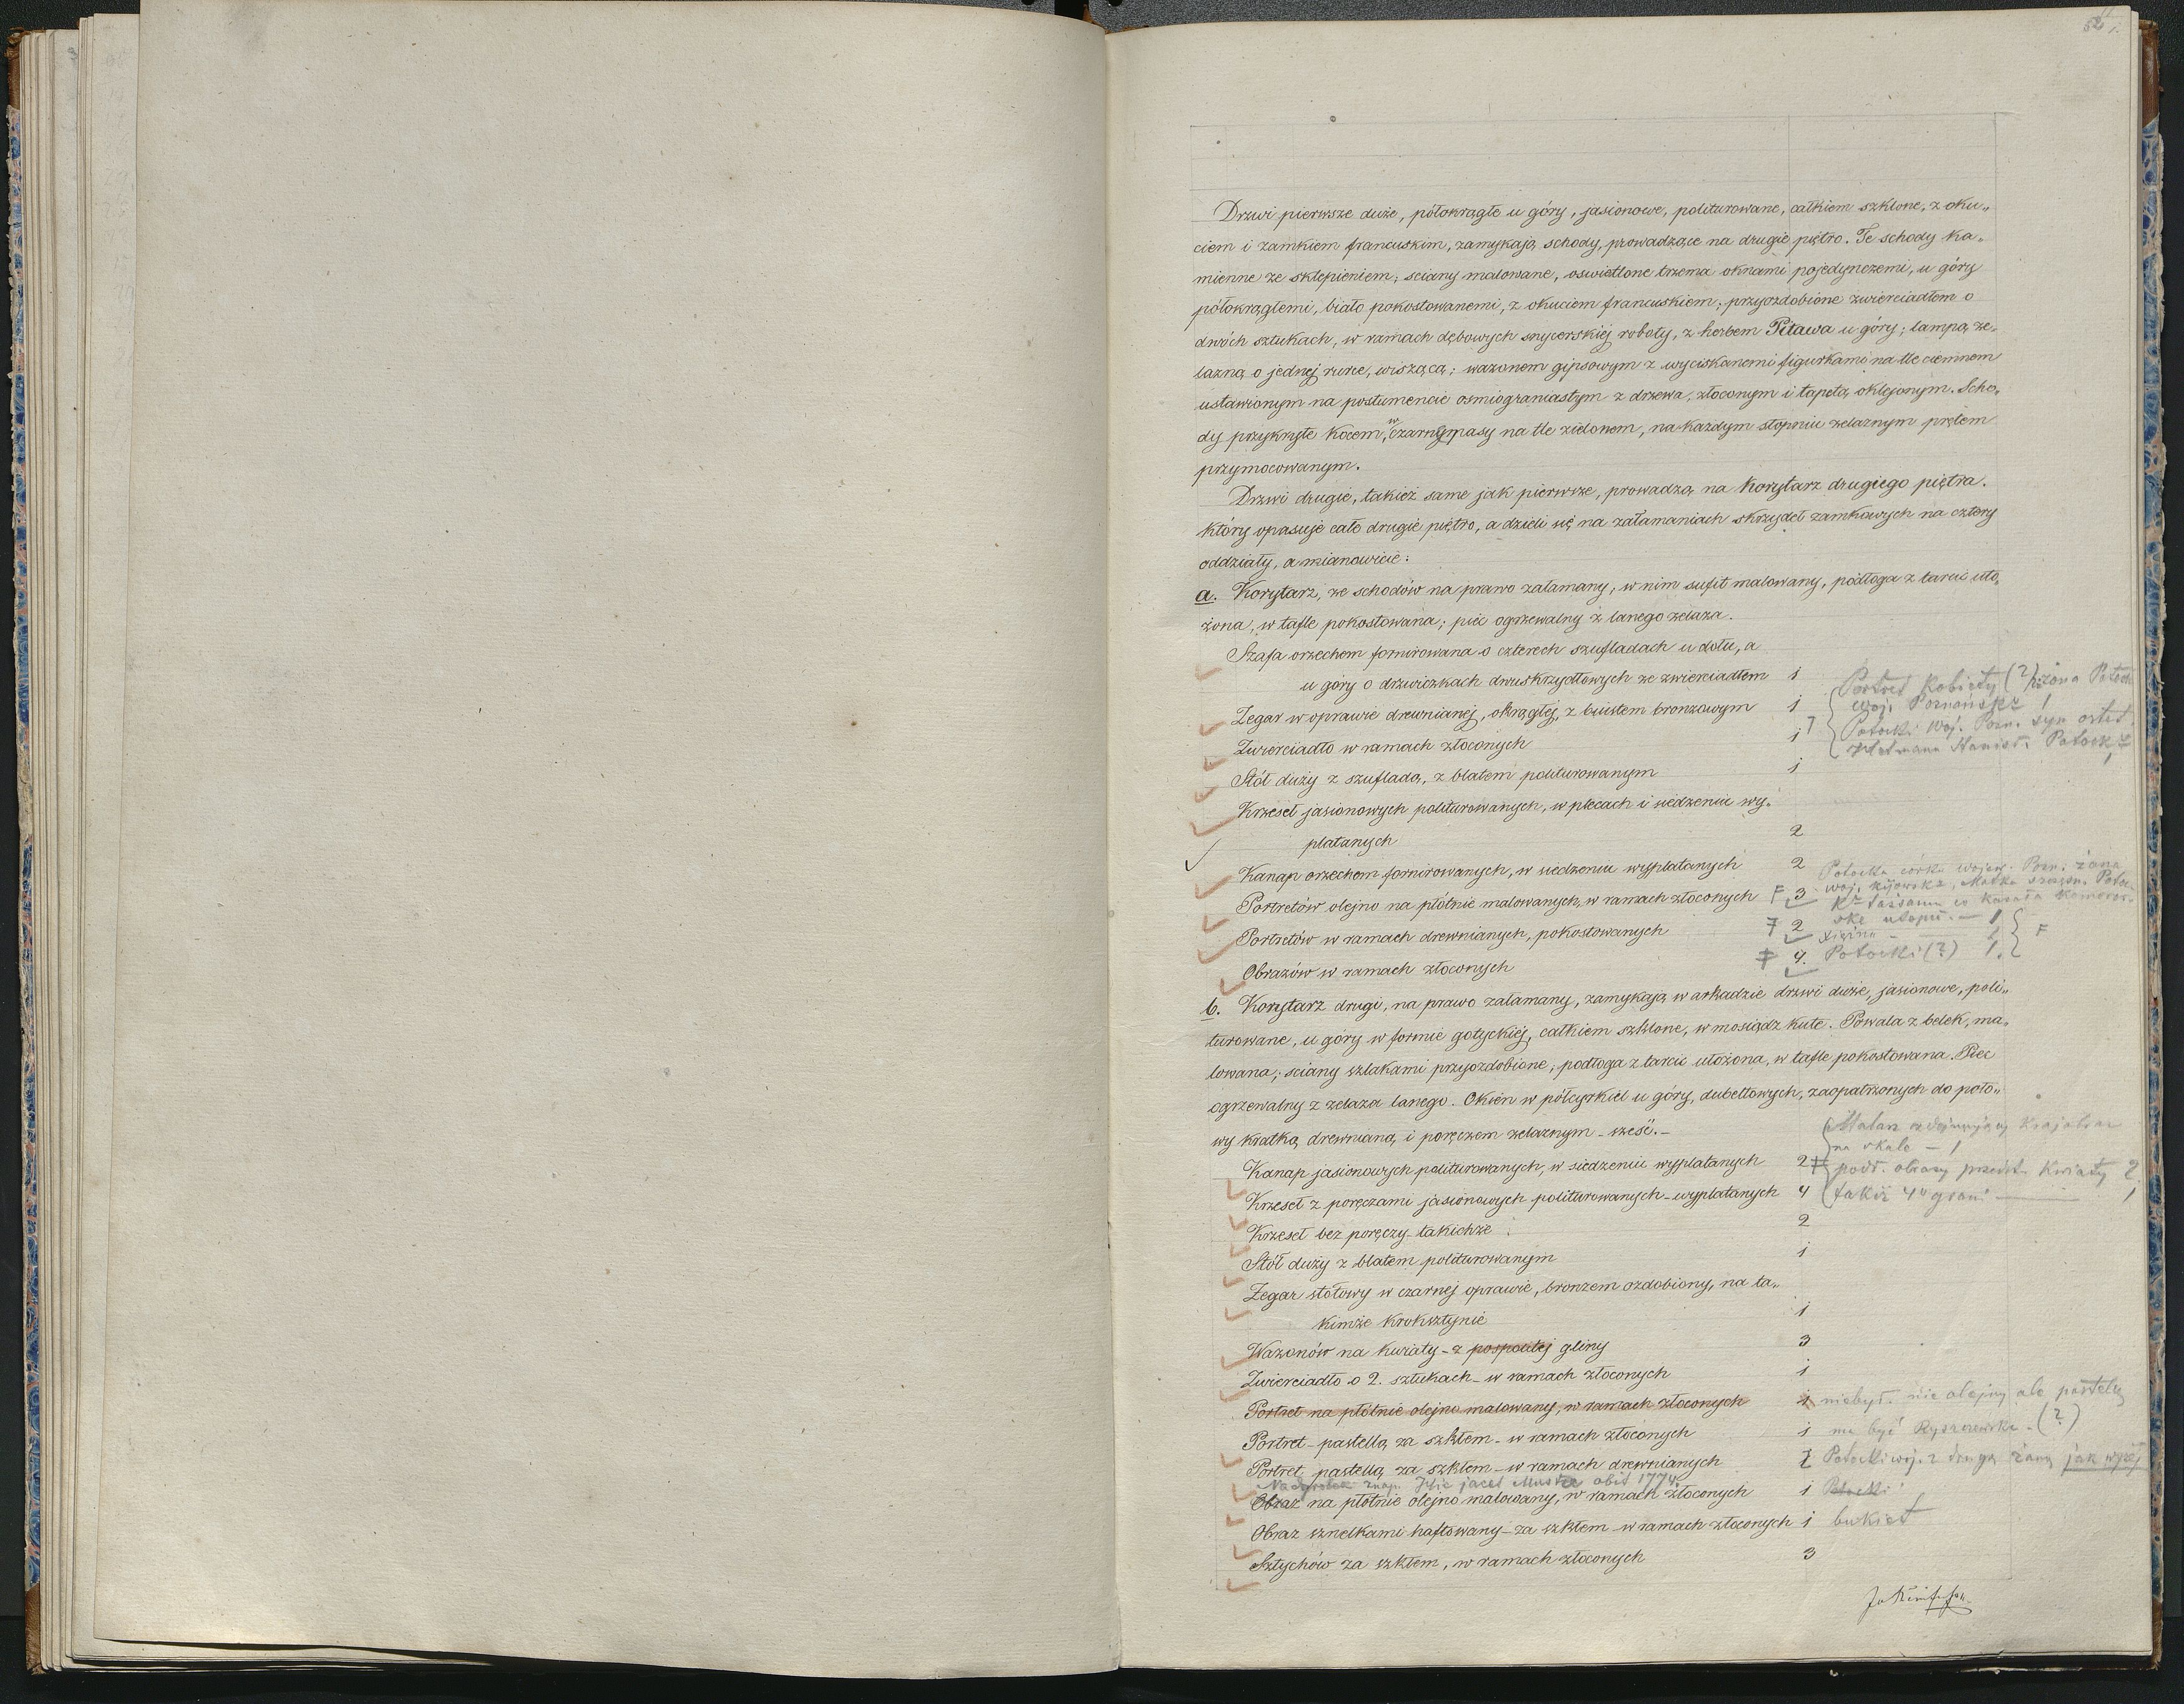 52
Drzwi pierwsze duże, półokrągłe u góry, jasionowe, politurowane, całkiem szklone, z oku„
ciem i zamkiem francuskim, zamykają schody, prowadzące na drugie piętro. Te schody ka„
mienne ze sklepieniem; ściany malowane, oświetlone trzema oknami pojedynczemi, u góry
półokrągłemi, biało pokostowanemi, z okuciem francuskiem; przyozdobione zwierciadłem o
dwóch sztukach, w ramach dębowych snycerskiej roboty, z herbem Pilawa u góry; lampą że„
lazną o jednej rurce, wiszącą; wazonem gipsowym z wyciskanemi figurkami na tle ciemnem
ustawionym na postumencie ośmiograniastym z drzewa, złoconym i tapetą oklejonym. Scho„
dy przykryte kocem, w czarne pasy na tle zielonem, na każdym stopniu żelaznym prętem
przymocowanym.
Drzwi drugie, takież same jak pierwsze, prowadzą na Korytarz drugiego piętra.
który opasuje całe drugie piętro, a dzieli się na załamaniach skrzydeł zamkowych na cztery
oddziały, a mianowicie:
a. Korytarz, ze schodów na prawo załamany, w nim sufit malowany, podłoga z tarcic uło„
żona, w tafle pokostowana; piec ogrzewalny z lanego żelaza.
Szafa orzechem fornirowana o czterech szufladach u dołu, a
u góry o drzwiczkach dwuskrzydłowych ze zwierciadłem 1
Portret Kobiety (?) żona Potoc
woj. Poznańsk 1
Zegar w oprawie drewnianej, okrągłej, z biustem bronzowym 1
Potocki Woj. Pozn. syn ostat.
Zwierciadło w ramach złoconych 1
Hetmana Stanisł. Potock
Stół duży z szufladą, z blatem politurowanym 1
Krzeseł jasionowych politurowanych, w plecach i siedzeniu wy„
platanych 2
Kanap orzechem fornirowanych, w siedzeniu wyplatanych 2
Potocka córka wojew. Pozn. żona
Portretów olejno na płótnie malowanych, w ramach złoconych F 3
woj. kijowsk., Matka
Portretów w ramach drewnianych, pokostowanych 7 2
Obrazów w ramach złoconych F 4. Potocki (?) 1. F
b. Korytarz drugi, na prawo załamany, zamykają w arkadzie drzwi duże, jasionowe, poli„
turowane, u góry w formie gotyckiej, całkiem szklone, w mosiądz kute. Powała z belek, ma„
lowana; ściany szlakami przyozdobione; podłoga z tarcic ułożona, w tafle pokostowana. Piec
ogrzewalny z żelaza lanego. Okien w półcyrkiel u góry, dubeltowych, zaopatrzonych do poło„
wy kratką drewnianą i poręczem żelaznym – sześć. –
Malarz zdejmujący krajobraz
na skale – 1
Kanap jasionowych politurowanych, w siedzeniu wyplatanych 2
podł. obrazy przedst. kwiaty 2.
Krzeseł z poręczami jasionowych politurowanych – wyplatanych 4
takiż
Krzeseł bez poręczy – takichże 2
Stół duży z blatem politurowanym 1
Zegar stołowy w czarnej oprawie, bronzem ozdobiony, na ta„
kimże kroksztynie 1
Wazonów na kwiaty – z pospolitej gliny 3
Zwierciadło o 2. sztukach – w ramach złoconych 1
Portret na płótnie olejno malowany, w ramach złoconych 1 niebył. nie olejny ale pastelą
Portret – pastellą za szkłem – w ramach złoconych 1 ma być Ryszczewska. (?)
Portret pastellą za szkłem – w ramach drewnianych 1 Potocki woj. z drugą żoną jak wyżej
Nadgrobek jacet obit 1774
Obraz na płótnie olejno malowany, w ramach złoconych 1 Potocki
Obraz sznelkami haftowany – za szkłem – w ramach złoconych 1 bukiet
Sztychów za szkłem, w ramach złoconych 3